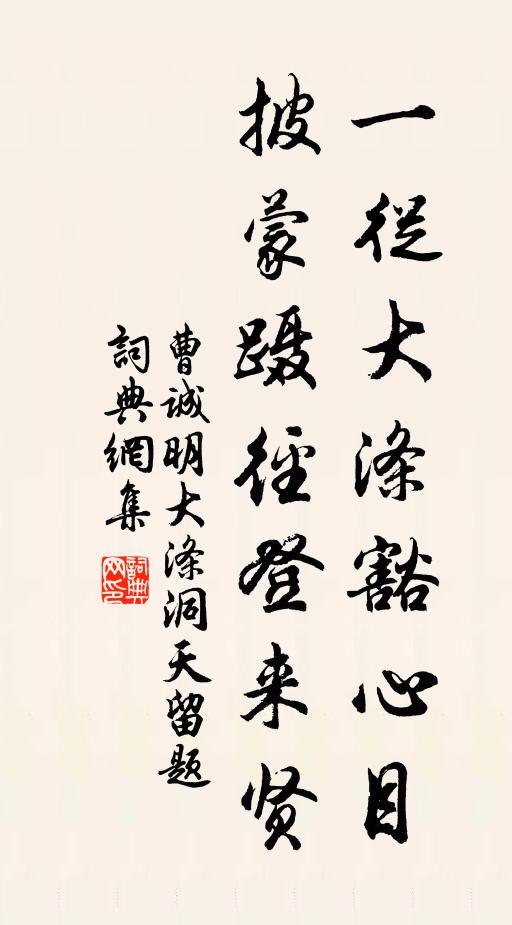 一從大滌豁心目
披蒙蹑徑登来贤
曹诚明大滌洞天留題
詞典網集
詞典
网印